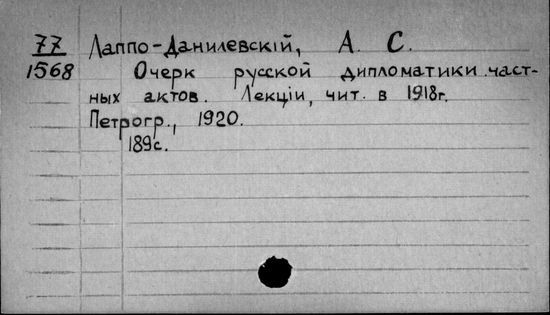 77 Лаппо-Данилевскій, А. С.
1568 Очерк русской дипломатики част-
ных актов. Лекціи, чит. в 1918г.
Петрогр., 1920.
189с.